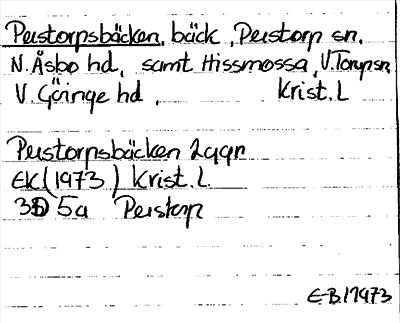 Perstorpsbäcken, bäck, Perstorp sn,
N. Åsbo hd, samt Hissmossa, V. Torup sn
V. Göinge hd, Krist. L
Perstorpsbäcken 2ggr
EK (1973) Krist. L.
3D 5a Perstorp
E-B. 1973